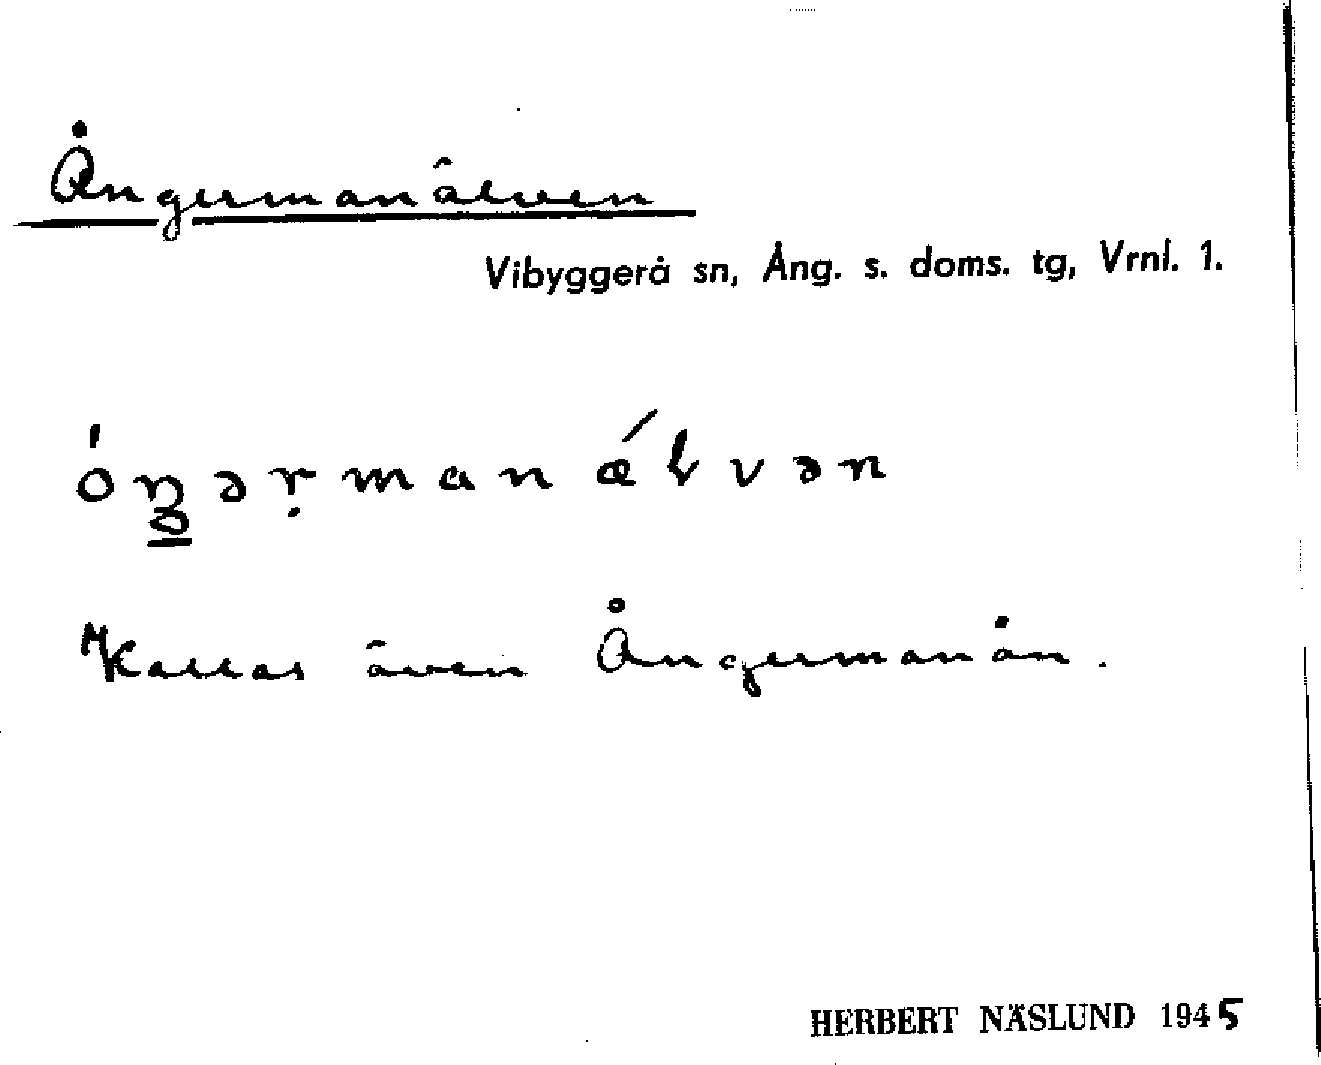 Ångermanälven
Vibyggerå sn, Ång. s. doms. tg, Vrnl. 1.
Kallas även Ångermanån.
HERBERT NÄSLUND 1945